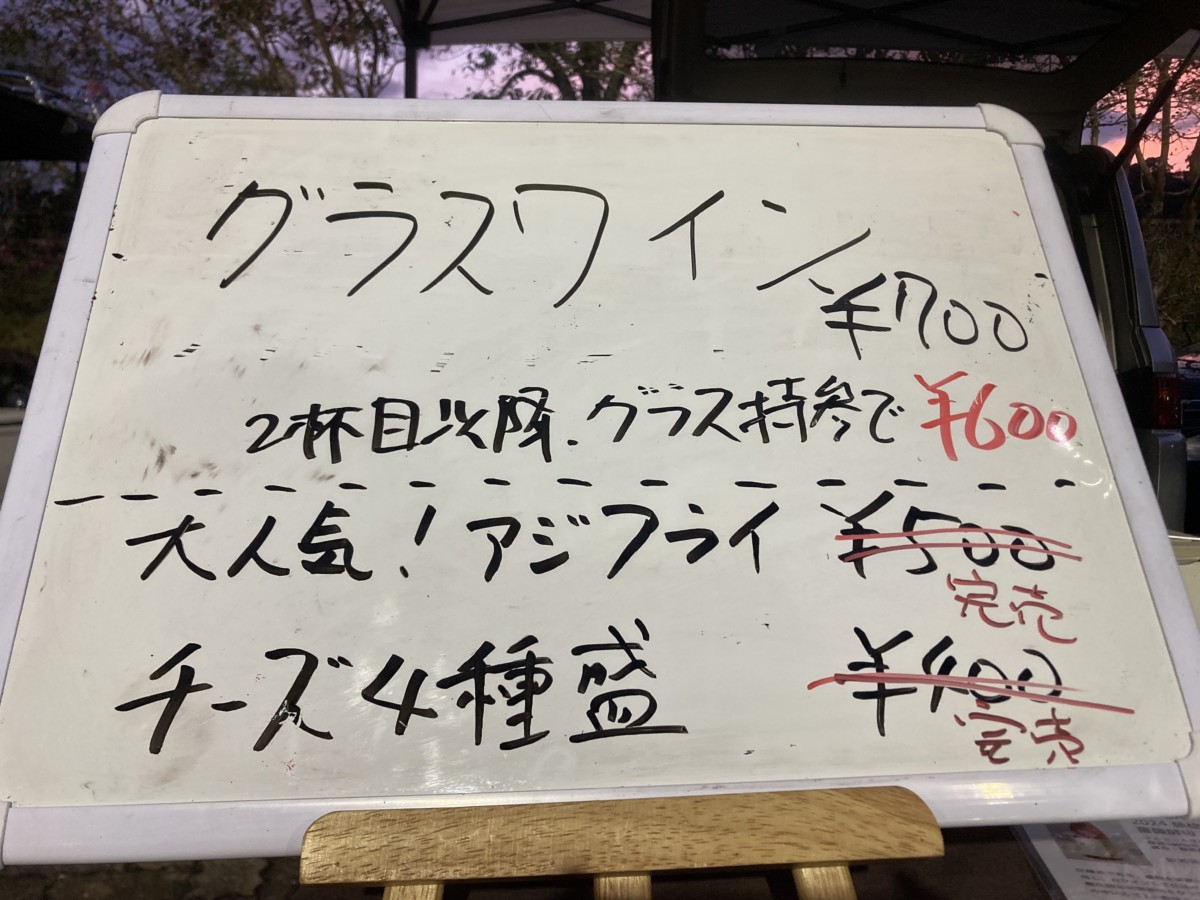 グラスワイン
¥700
2杯目以降、グラス持参で ¥600
大人気！アジフライ ¥500
完売
チーズ4種盛 ¥400
完売
2024